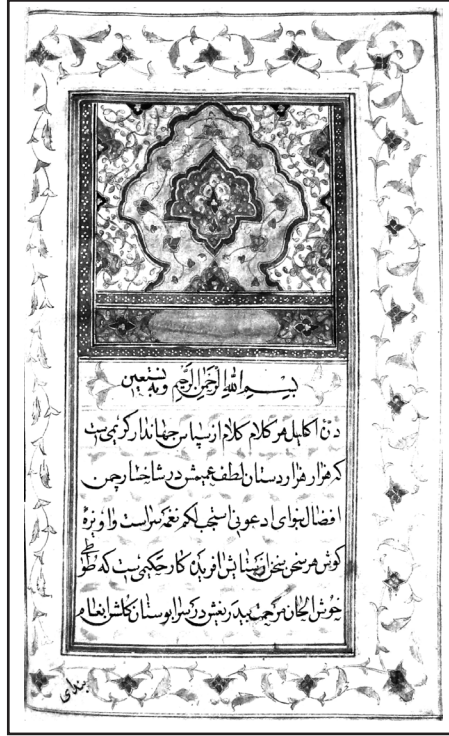 بسم الله الرحمن الرحیم وبه نستعین
درة اکلیل هر کلام کلام از سپاس جهاندار کریمی است
که هزار هزار دستان لطف عمیمش در شاخسار چمن
افضال بنوای ادعونی استجب لکم نغمه سراست و اویزه
کوش هر سخن سخن از ستایش افریدن کار حکیمی است که طوطی
خوش الحان مرحمت بیدریغش در سرابوستان
بندای